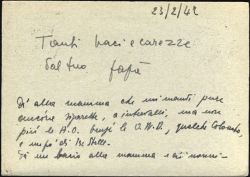 23/2/42
Tanti baci e carezze
dal tuo papà
Di' alla mamma che mi mandi pure
ancora sigarette, a intervalli, ma non
più le A.O. bensì le
e un po' di Tre Stelle.
Dì un bacio alla mamma e ai nonni -